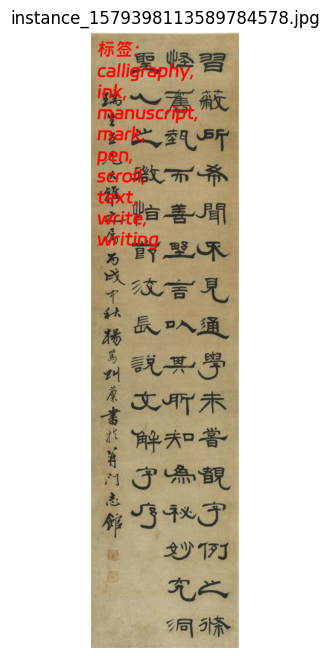 instance_1579398113589784578.jpg
标签:
calligraphy,
ink,
manuscript,
mark,
pen,
scroll,
text,
write,
writing
習蔽所希聞不見通學未嘗覩字例之條
怪舊埶而善野言以其所知為祕妙究洞
聖人之微恉節洨長說文解字序
瑞生兄大雅之屬丙戌中秋楊篤書於并門志館